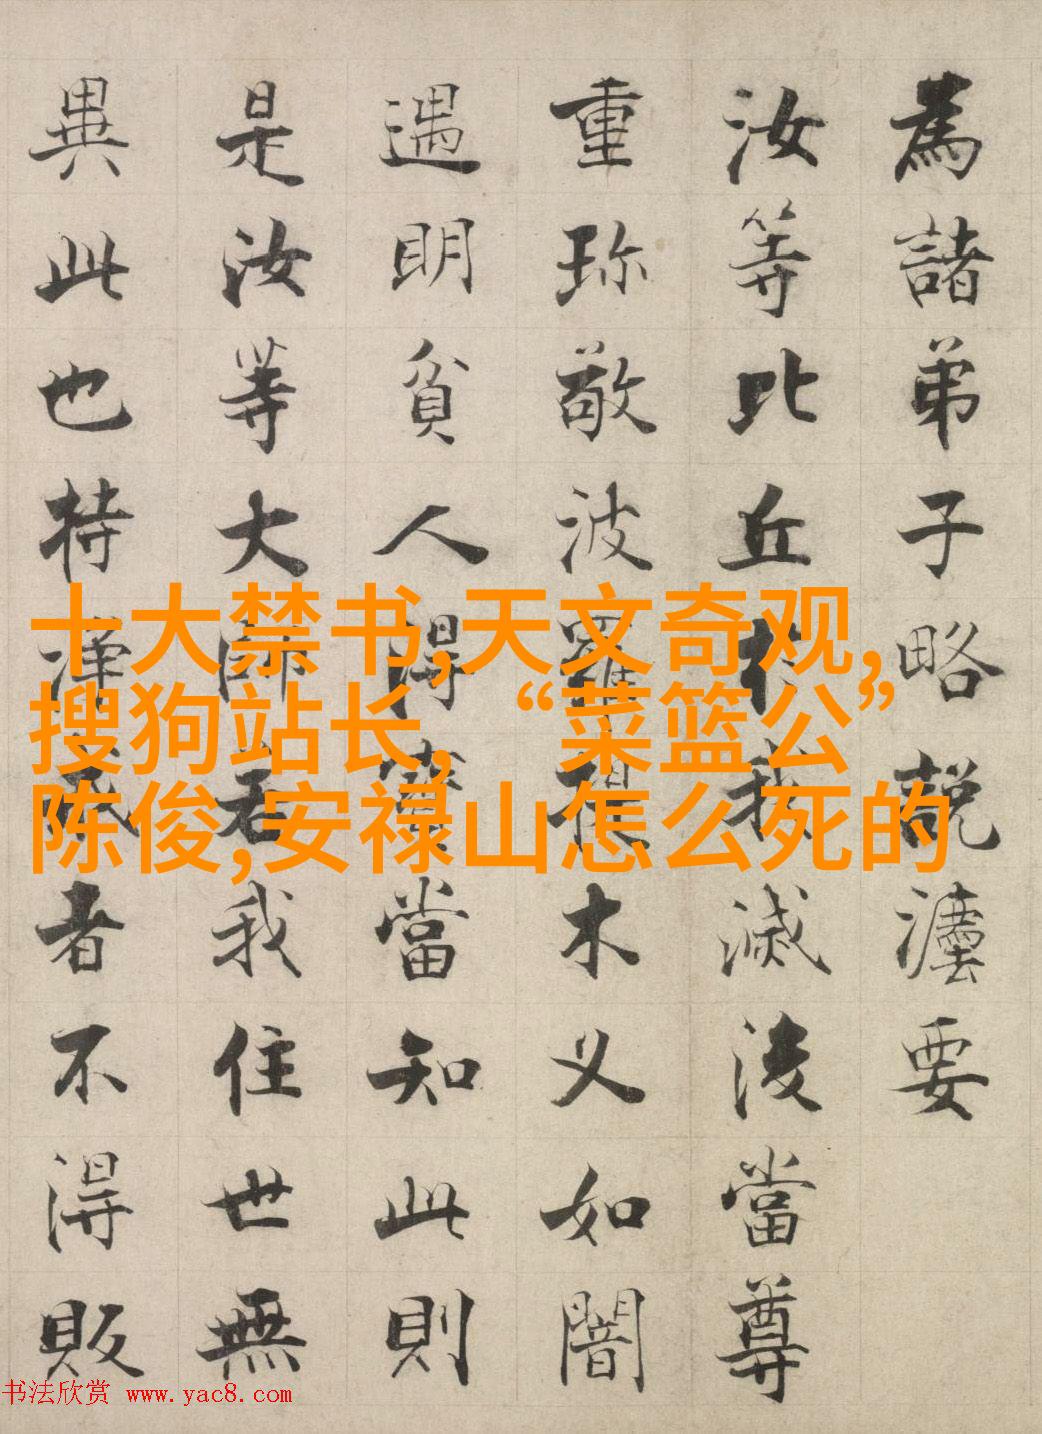 為諸弟子略說灋要
汝等比丘於我滅後當尊
重珎敬波羅提木叉如闇
遇明貧人得寶當知此則
是汝等大師若我住世無
異此也持淨戒者不得販
十大禁书,天文奇观,
搜狗站长,“菜篮公”
陈俊,安禄山怎么死的
书法欣赏 www.yac8.com